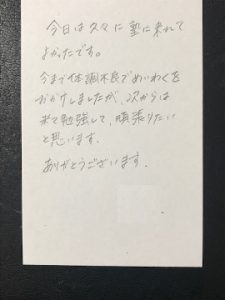 今日は久々に塾に来れて
よかったです。
今まで体調不良でめいわくを
おかけしましたが、次からは
来て勉強して、頑張りたい
と思います。
ありがとうございます。